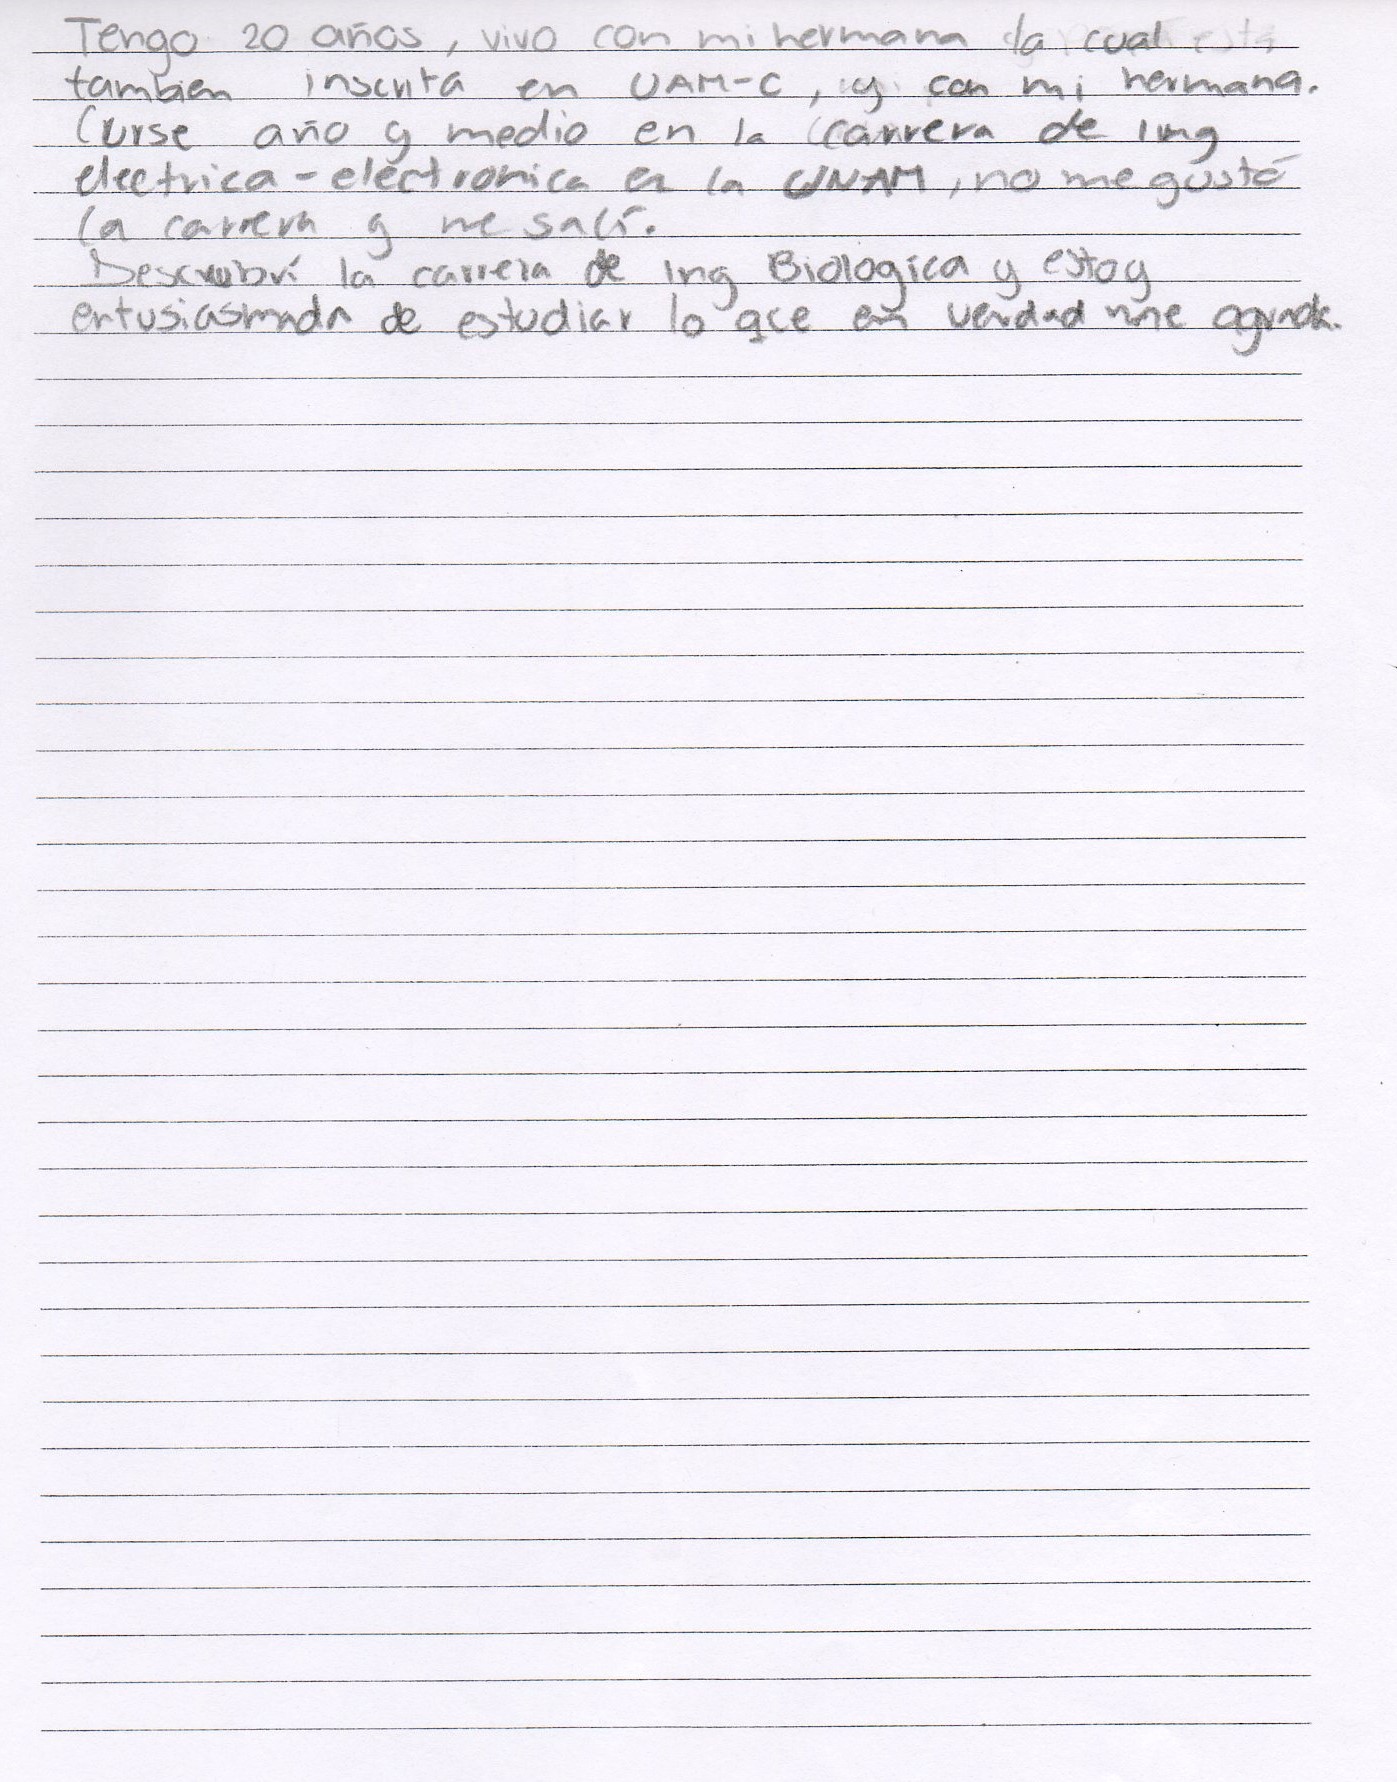 Tengo 20 años, vivo con mi hermana la cual está
tambien inscrita en UAM-C, y con mi hermana.
Curse año y medio en la carrera de Ing
electrica-electronica en la UNAM, no me gustó
la carrera y me salí.
Descubrí la carrera de Ing Biologica y estoy
entusiasmada de estudiar lo que en verdad me agrada.